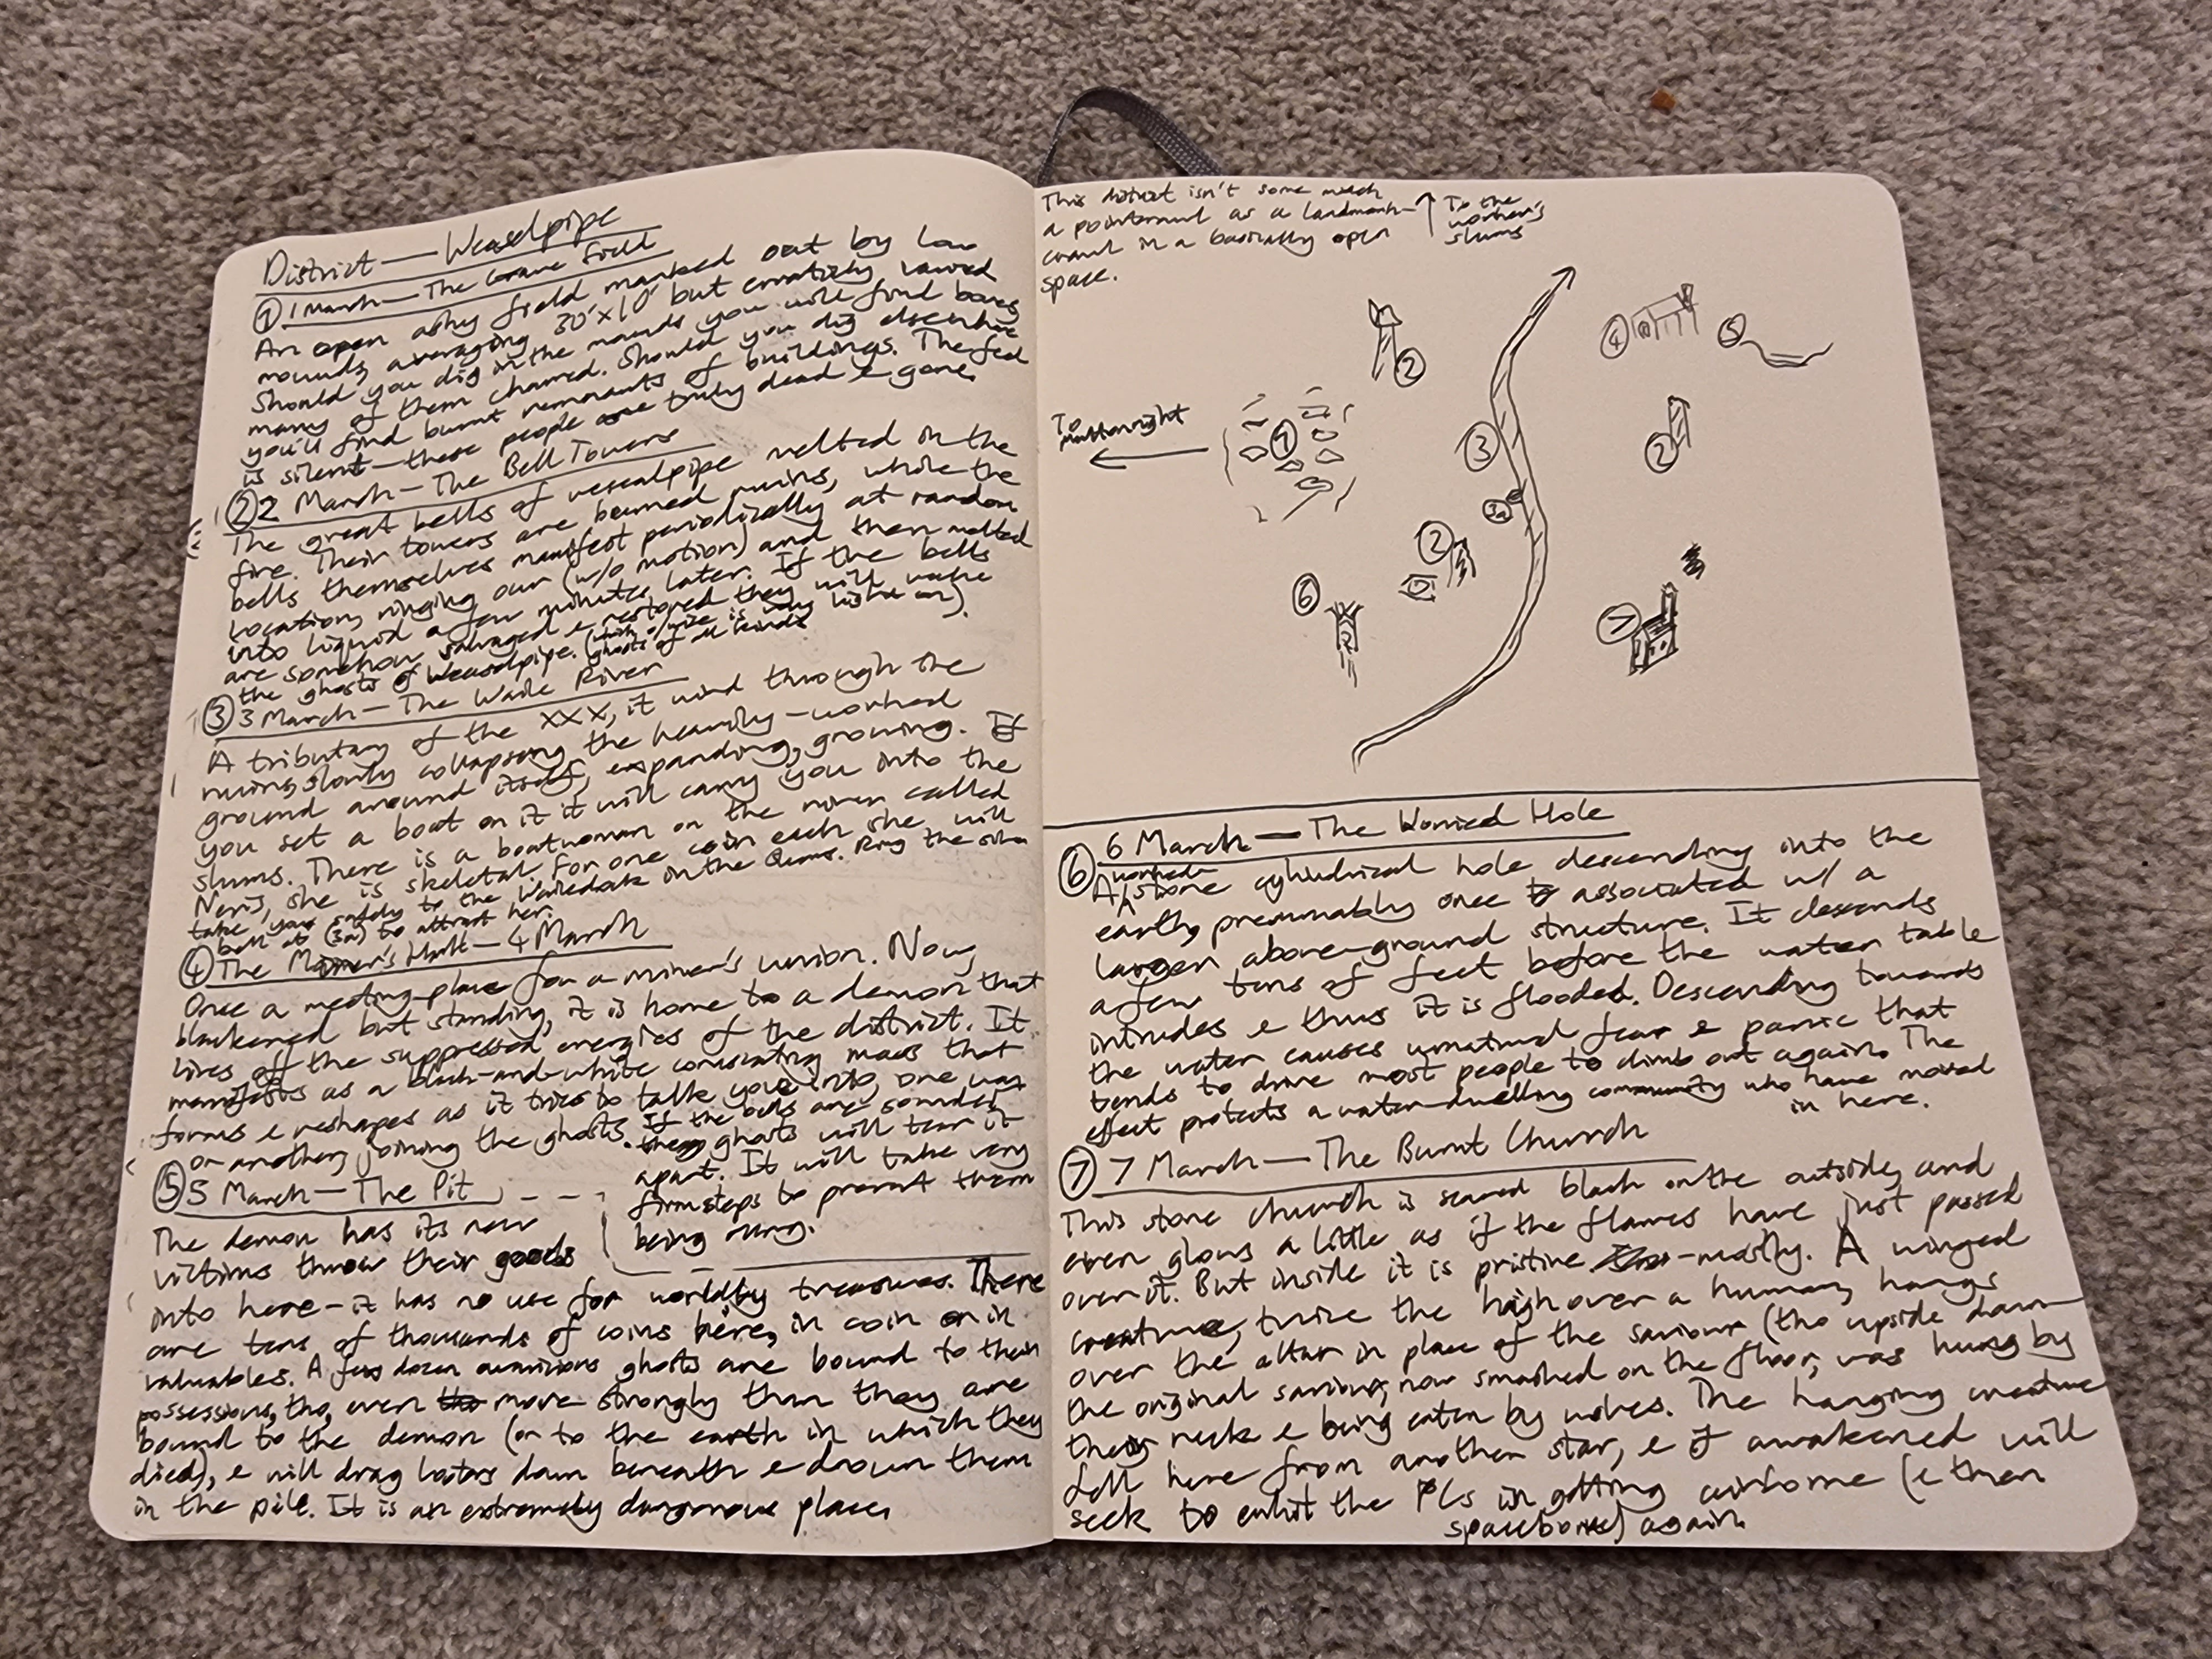 District — Weaselpipe
① 1 March — The Grave Field
An open ashy field marked out by low
mounds, averaging 30'x10' but erratically varied
Should you dig in the mounds you will find bones
many of them charred. Should you dig elsewhere
you'll find burnt remnants of buildings. The field
is silent — these people are truly dead & gone.
② 2 March — The Bell Towers
The great bells of weaselpipe melted in the
fire. Their towers are burned ruins, while the
bells themselves manifest periodically at random
locations, ringing our (w/o motion) and then melted
into liquid a few minutes later. If the bells
are somehow salvaged & restored they will wake
the ghosts of Weaselpipe. (ghosts of all kinds
③ 3 March — The Waile River
A tributary of the XXX, it wind through the
ruins, slowly collapsing the heavily-worked
ground around itself, expanding, growing. If
you set a boat on it it will carry you into the
slums. There is a boatwoman on the river called
Neris, she is skeletal. For one coin each she will
take you safely to the Wailedock in the slums. Ring the silver
bell at (3a) to attract her.
④ The Miner's Hall — 4 March
Once a meeting-place for a miner's union. Now,
blackened but standing, it is home to a demon that
lives off the suppressed energies of the district. It
manifests as a black-and-white coruscating mass that
forms & reshapes as it tries to talk you into, one way
or another, joining the ghosts. If the bells are sounded
the ghosts will tear it
apart. It will take very
firm steps to prevent them
being rung.
⑤ 5 March — The Pit
The demon has its new
victims throw their goods
into here – it has no use for worldly treasures. There
are tens of thousands of coins here, in coin or in
valuables. A few dozen avaricious ghosts are bound to their
possessions, tho, even more strongly than they are
bound to the demon (or to the earth in which they
died), & will drag looters down beneath & drown them
in the pile. It is an extremely dangerous place.
This district isn't some much
a pointcrawl as a landmark-
crawl in a basically open
space.
To the
worker's
slums
To
④
⑤
②
①
③
②
3a
②
⑥
⑦
⑥ 6 March — The Worried Hole
A worked stone cylindrical hole descending into the
earth, presumably once associated w/ a
larger above-ground structure. It descends
a few tens of feet before the water table
intrudes & thus it is flooded. Descending towards
the water causes unnatural fear & panic that
tends to drive most people to climb out again. The
effect protects a water-dwelling community who have moved
in here.
⑦ 7 March — The Burnt Church
This stone church is seared black on the outside, and
even glows a little as if the flames have just passed
over it. But inside it is pristine – mostly. A winged
creature, twice the high over a human, hangs
over the altar in place of the saviour (tho upside down
the original saviour, now smashed on the floor, was hung by
their neck & being eaten by wolves. The hanging creature
fell here from another star, & if awakened will
seek to enlist the PCs in getting airborne (& then
spaceborne) again.